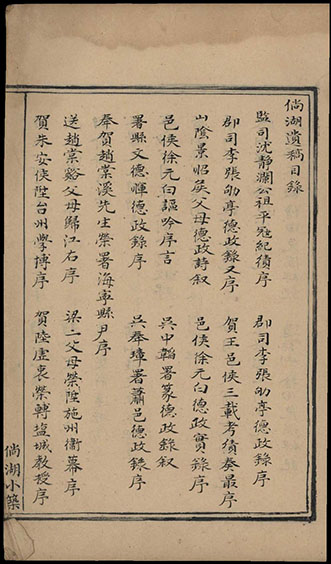 倘湖遺稿目錄
監司沈靜瀾公祖平寇紀績序　郡司李張劬亭德政錄序
郡司李張劬亭德政錄又序　賀王邑侯三載考績奏最序
山陰景炤侯父母德政詩叙　邑侯徐元白德政實錄序
邑侯徐元白謳吟序言　吳中韜署篆德政錄叙
署縣文德暉德政錄序　吳奉璋署蕭邑德政錄序
奉賀趙崇溪先生榮署海寧縣尹序
送趙崇谿父母歸江右序　梁二父母榮陞施州衛幕序
賀朱安侯陞台州學博序　賀陸虛衷榮轉塩城教授序
倘湖小築